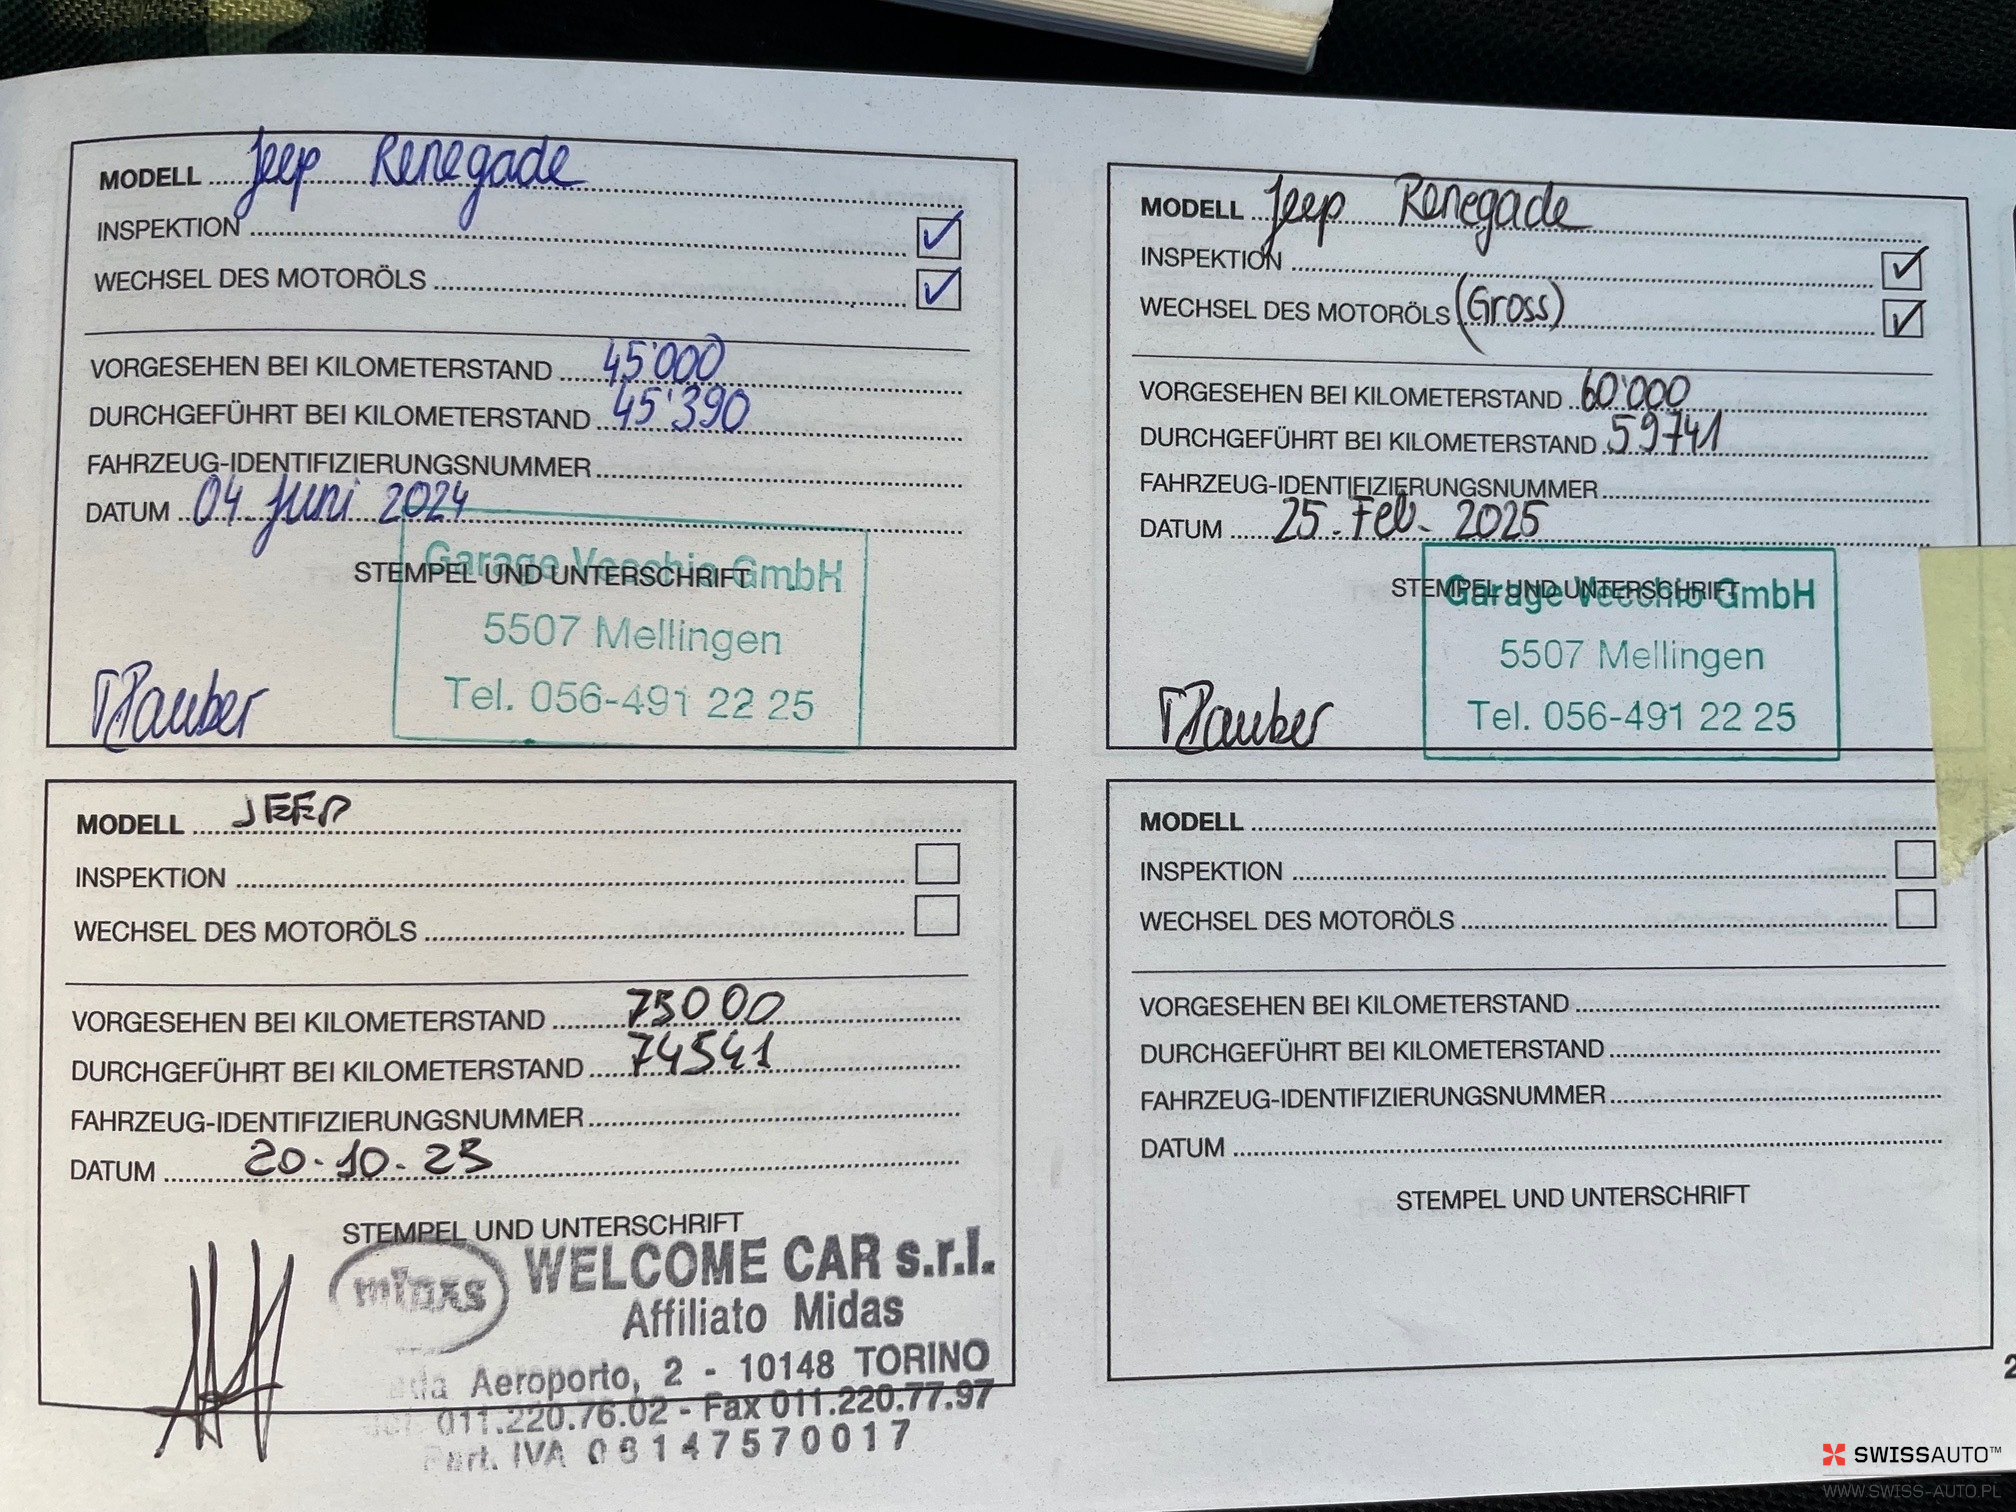 MODELL Jeep Renegade
INSPEKTION
WECHSEL DES MOTORÖLS
VORGESEHEN BEI KILOMETERSTAND 45'000
DURCHGEFÜHRT BEI KILOMETERSTAND 45'390
FAHRZEUG-IDENTIFIZIERUNGSNUMMER
DATUM 04. Juni 2024
STEMPEL UND UNTERSCHRIFT
Garage Vecchio GmbH
5507 Mellingen
Tel. 056-491 22 25
MODELL Jeep Renegade
INSPEKTION
WECHSEL DES MOTORÖLS (Gross)
VORGESEHEN BEI KILOMETERSTAND 60'000
DURCHGEFÜHRT BEI KILOMETERSTAND 59741
FAHRZEUG-IDENTIFIZIERUNGSNUMMER
DATUM 25. Feb. 2025
STEMPEL UND UNTERSCHRIFT
Garage Vecchio GmbH
5507 Mellingen
Tel. 056-491 22 25
MODELL JEEP
INSPEKTION
WECHSEL DES MOTORÖLS
VORGESEHEN BEI KILOMETERSTAND 75000
DURCHGEFÜHRT BEI KILOMETERSTAND 74541
FAHRZEUG-IDENTIFIZIERUNGSNUMMER
DATUM 20.10.25
STEMPEL UND UNTERSCHRIFT
WELCOME CAR s.r.l.
Affiliato Midas
Aeroporto, 2 - 10148 TORINO
011.220.76.02 - Fax 011.220.77.97
Part. IVA 08147570017
MODELL
INSPEKTION
WECHSEL DES MOTORÖLS
VORGESEHEN BEI KILOMETERSTAND
DURCHGEFÜHRT BEI KILOMETERSTAND
FAHRZEUG-IDENTIFIZIERUNGSNUMMER
DATUM
STEMPEL UND UNTERSCHRIFT
SWISSAUTO™
WWW.SWISS-AUTO.PL